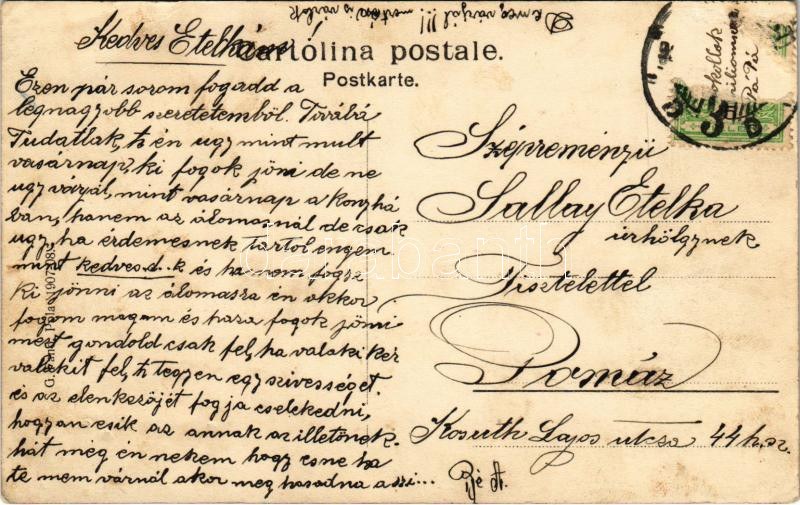 De meg várjál!!! mert én is várlak
Kedves Etelkám!
Cartólina postale.
Postkarte.
Ezen pár sorom fogadd a
legnagyobb szeretetemből. Továbá
Tudatlak, h én ugy mint mult
vasárnap, ki fogok jöni de ne
ugy várjál, mint vasárnap a Konyhá
ban, hanem az álomasnál de csak
ugy ha érdemesnek tartol engem
mint kedves d..k és ha nem fogsz
ki jönni az álomasra én akkor
fogom magam és haza fogok jöni
mert gondold csak fel, ha valaki kér
valakit fel, h tegyen egy szivességet.
és az elenkezőjét fogja cselekedni,
hogyan esik az annak az illetőnek.
hát még én nekem hogy esne ha
te nem várnál akor meg hasadna a szi...
csokollak
Pa Pá
Szépreményü
Sallay Etelka
urhölgynek
Tisztelettel
Pomáz
Kosuth Lajos utcza 44 h.sz.